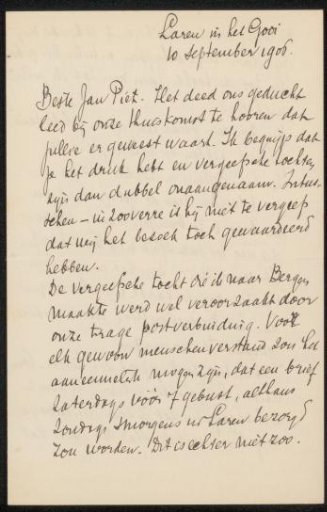 Laren in het Gooi
10 September 1905.
Beste Jan Piet. Het deed ons geducht
leed bij onze thuiskomst te hooren dat
jullie er geweest waart. Ik begrijp dat
je het druk hebt en vergeefsche tochten
zijn dan dubbel onaangenaam. Intus-
schen – in zooverre is hij niet te vergeefs
dat wij het bezoek toch gewaardeerd
hebben.
De vergeefsche tocht die ik naar Bergen
maakte werd wel veroorzaakt door
onze trage postverbinding. Voor
elk gewoon menschenverstand zou het
aannemelijk mogen zijn, dat een brief
Zaterdags vóór 7 gebust, althans
Zondags smorgens in Laren bezorgd
zou worden. Dit is echter niet zoo.